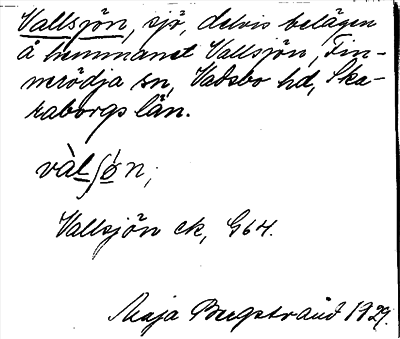 Vallsjön, sjö, delvis belägen
å hemmanet Vallsjön, Fin-
nerödja sn, Vadsbo hd, Ska-
raborgs län.
vàlʃön;
Vallsjön ek, G64.
Maja Bergstrand 1929.